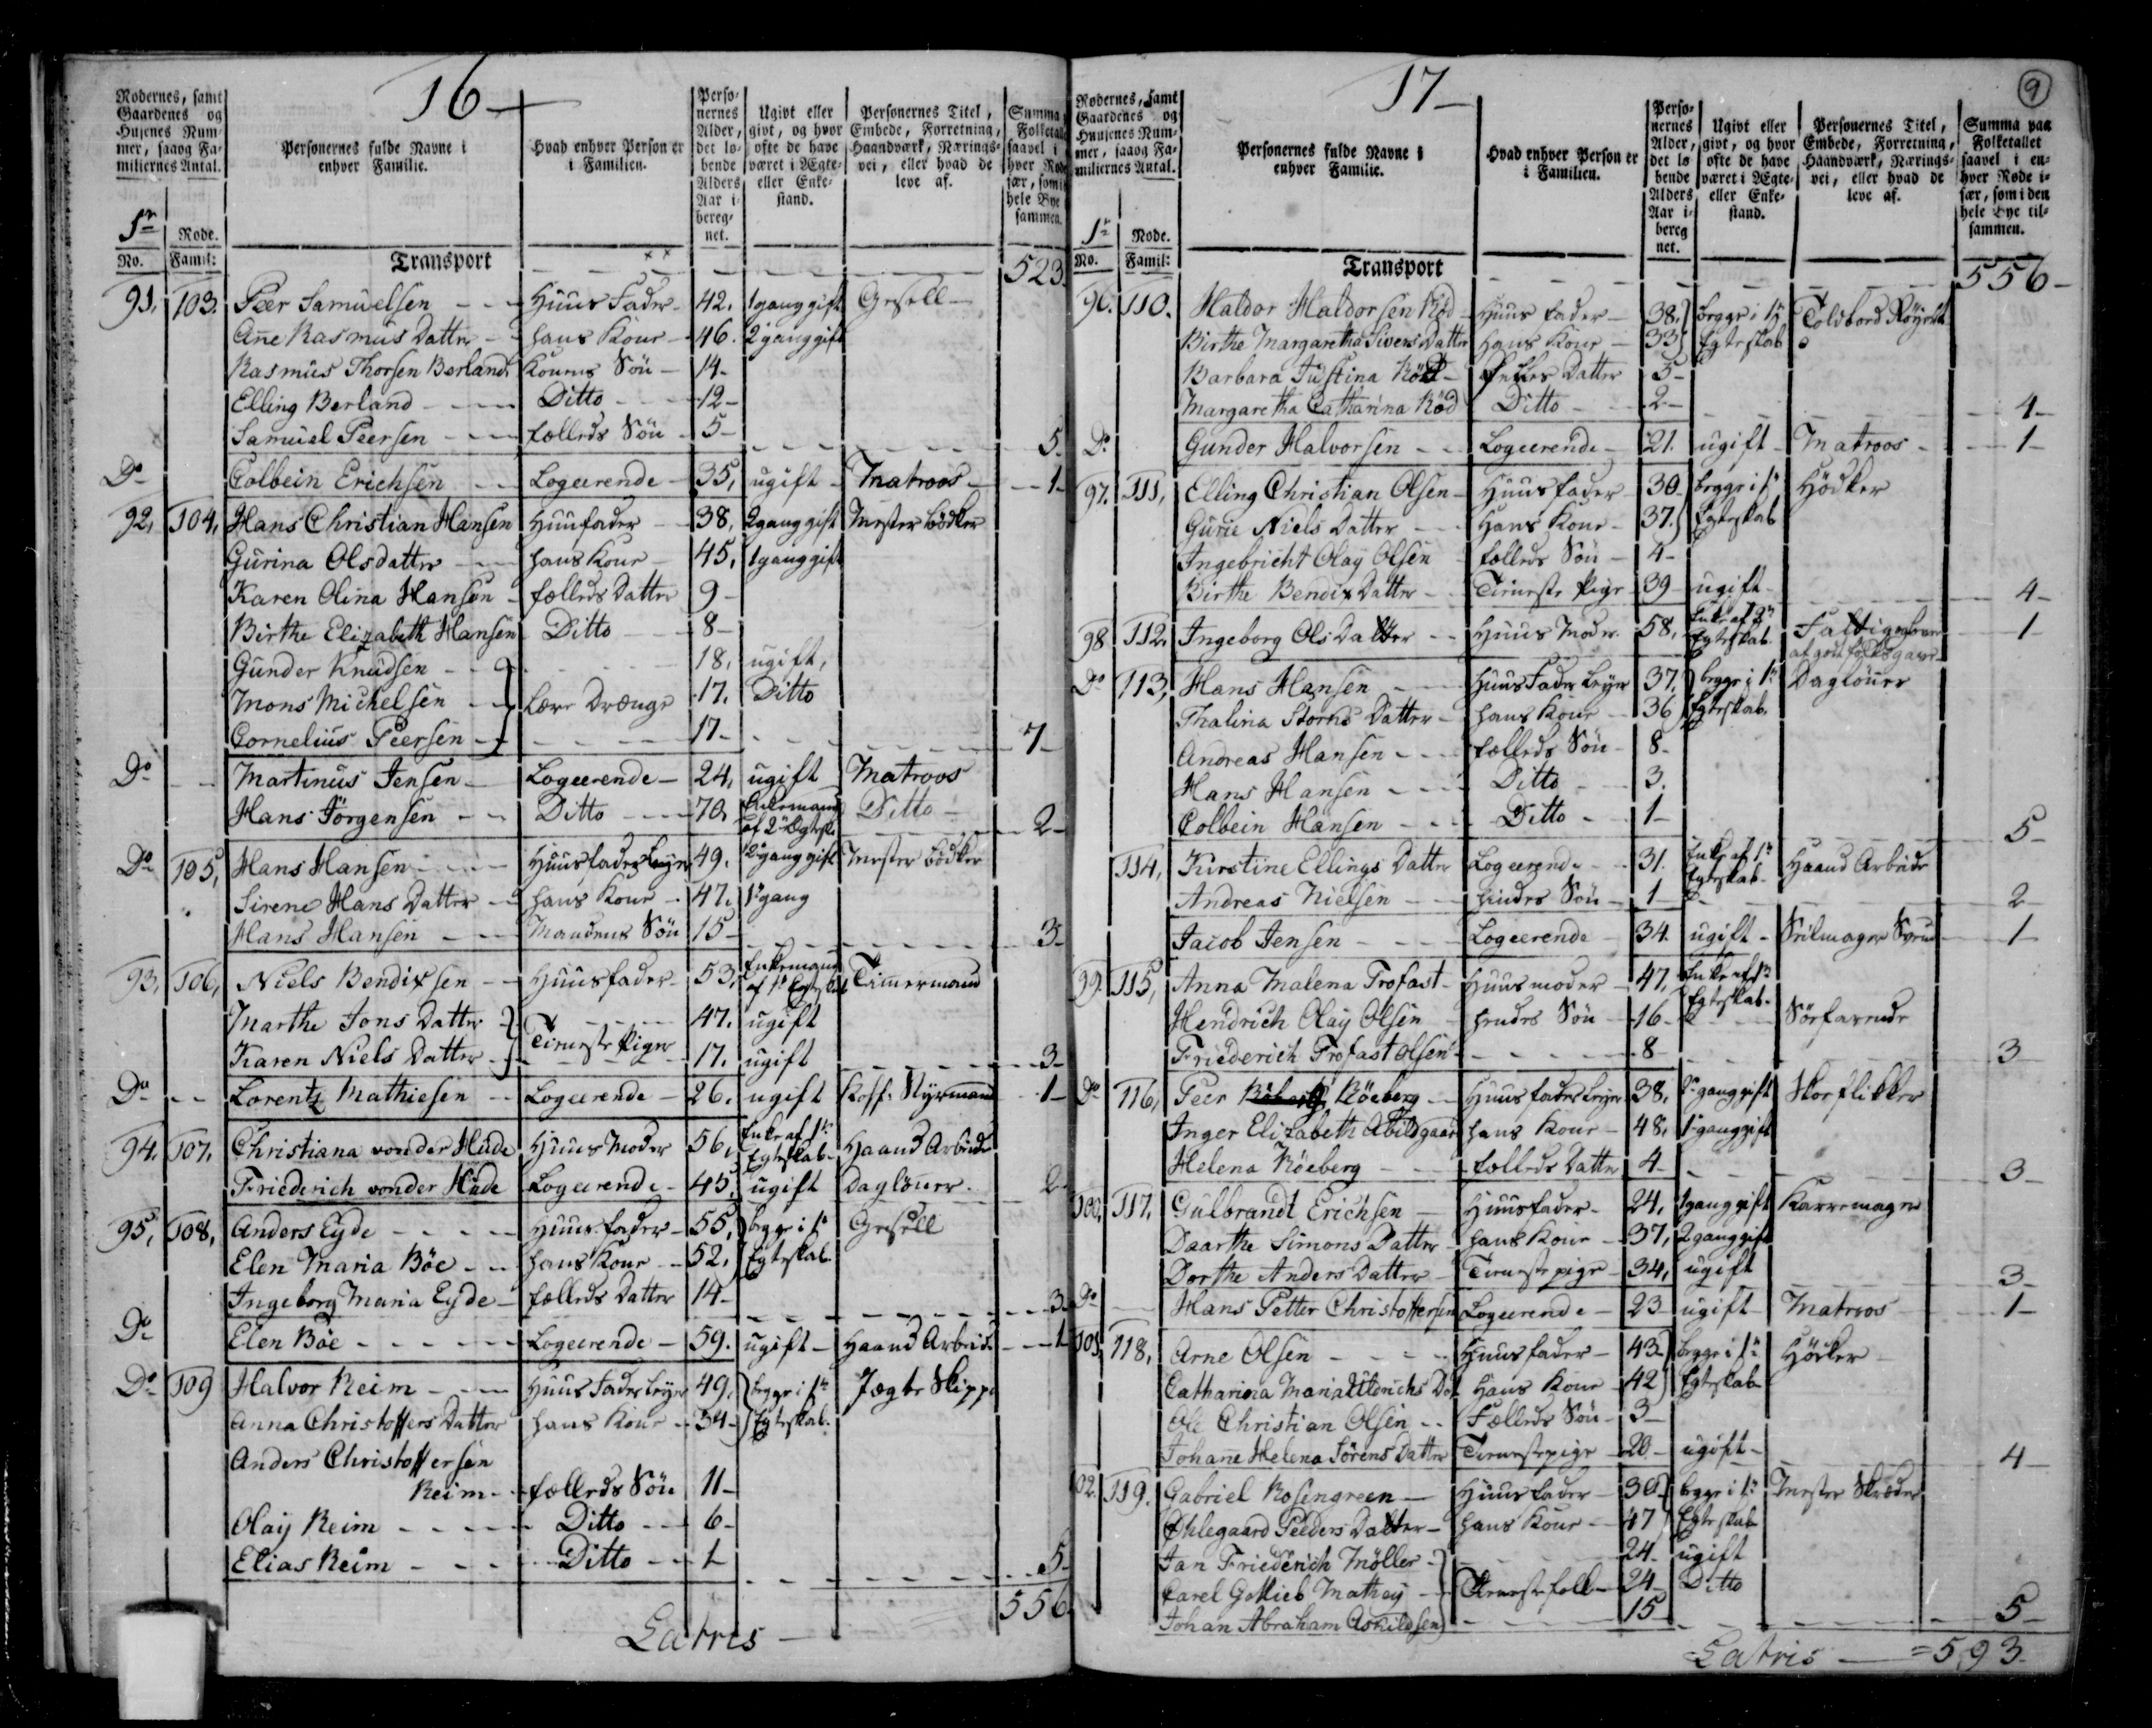 16
Rodernes, samt Gaardenes og Husenes Nummer, saavg Familiernes Antal.
Personernes fulde Navne i enhver Familie.
Hvad enhver Person er i Familien.
Personernes Alder, det løbende Alders Aar iberegnet.
Ugivt eller givt, og hvor ofte de have været i Ægte- eller Enkestand.
Personernes Titel, Embede, Forretning, Haandværk, Næringsvei, eller hvad de leve af.
1te Rode.
No. Famil:
Transport 523
91. 103. Peer Samuelsen Huus Fader 42. 1 gang gift Gesell
Ane Rasmus Datter hans Kone 46. 2 gang gift
Rasmus Thorsen Berland Konens Sön 14
Elling Berland Ditto 12
Samuel Peersen fælleds Sön 5 5
Do Colbein Erichsen Logeerende 35, ugift Matroos 1
92, 104, Hans Christian Hansen Huusfader 38, 2 gang gift Mester Bödker
Gurina Olsdatter hans Kone 45, 1 gang gift
Karen Olina Hansen fælleds Datter 9
Birthe Elizabeth Hansen Ditto 8
Gunder Knudsen 18, ugift,
Mons Michelsen Lære Drænge 17. Ditto
Cornelius Peersen 17 7
Do Martinus Jensen Logeerende 24, ugift Matroos
Hans Jörgensen Ditto 70 Enkemand af 2 Ægtesk Ditto 2
Do 105, Hans Hansen Huusfader Leyer 49. 2 gang gift Mester Bödker
Sirene Hans Datter hans Kone 47. 1 gang
Hans Hansen Mandens Sön 15 3
93, 106, Niels Bendixsen Huusfader 53, Enkemand af 1te Egteskab Timermand
Marthe Jons Datter 47. ugift
Karen Niels Datter Tieneste Piger 17. ugift 3
Do Lorentz Mathiesen Logeerende 26. ugift Koff: Styrmand 1
94. 107. Christiana vonder Hude Huus Moder 56, Enke af 1te Egteskab Haand Arbeide
Friederich vonder Hude Logeerende 45, ugift Daglöner 2
95, 108, Anders Eyde Huus fader 55, begge i 1te Gesell
Elen Maria Böe hans Kone 52, Egteskab
Ingeborg Maria Eyde fælleds Datter 14 3
Do Elen Böe Logeerende 59. ugift Haand Arbeid 1
Do 109 Halvor Reim Huus Fader Leyer 49, begge i 1te Jægte Skipper
Anna Christoffers Datter hans Kone 34 Egteskab
Anders Christoffersen
Reim fælleds Sön 11
Olay Reim Ditto 6
Elias Reim Ditto 1 5
556
Latris
17
9
Rodernes, samt Gaardenes og Huusenes Nummer, saavg Familiernes Antal.
Personernes fulde Navne i enhver Familie.
Hvad enhver Person er i Familien.
Personernes Alder, det løbende Alders Aar iberegnet.
Ugivt eller givt, og hvor ofte de have været i Ægte- eller Enkestand.
Personernes Titel, Embede, Forretning, Haandværk, Næringsvei, eller hvad de leve af.
Summa paa Folketallet saavel i enhver Rode især, som i den hele Bye tilsammen.
1te Rode.
No. Famil:
Transport 556
96. 110. Haldor Haldorsen Röd Huus fader 38, begge i 1te Toldbord
Birthe Margaretha Sivers Datter Hans Kone 33 Egteskab
Barbara Justina Röd Fælles Datter 5
Margaretha Catharina Röd Ditto 2 4
Do Gunder Halvorsen Logeerende 21. ugift Matroos 1
97. 111, Elling Christian Olsen Huusfader 30 begge i 1te Hödker
Gurie Niels Datter Hans Kone 37. Egteskab
Ingebricht Olay Olsen fælleds Sön 4
Birthe Bendix Datter Tieneste Pige 39 ugift 4
98 112. Ingeborg Ols Datter Huus Moder 58, Enke af 1te Egteskab 1
Do 113, Hans Hansen Huus Fader Leyer 37. begge i 1te Daglöner
Thalina Storms Datter hans Kone 36 Egteskab.
Andreas Hansen fælleds Sön 8
Hans Hansen Ditto 3.
Colbein Hansen Ditto 1 5
114, Kirstine Ellings Datter Logeerende 31. Enke af 1te Egteskab Haand Arbeide
Andreas Nielsen hindes Sön 1 2
Jacob Jensen Logeerende 34. ugift Seilmager Svend 1
99. 115, Anna Malena Trofast Huusmoder 47, Enke af 1te Egteskab
Hendrich Olay Olsen hendes Sön 16 Söefarende
Friederich Trofast Olsen 8 3
Do 116, Peer Röeberg Huusfader Leyer 38, 1 gang gift Skoeflikker
Inger Elizabeth Abildgaard hans Kone 48, 1 gang gift
Helena Röeberg fælleds Datter 4 3
100, 117. Gulbrandt Erichsen Huusfader 24, 1 gang gift Karremager
Daarthe Simons Datter hans Kone 37, 2 gang gift
Dorthe Anders Datter Tieneste pige 34, ugift 3
Do Hans Petter Christoffersen Logeerende 23 ugift Matroos 1
101, 118, Arne Olsen Huusfader 43 begge i 1te Höcker
Catharina Maria Ulderichs Dat Hans Kone 42 Egteskab
Ole Christian Olsen Fælleds Sön 3
Johane Helena Sörens Datter Tienestepige 20 ugift 4
02. 119. Gabriel Rosengreen Huusfader 30 begge i 1te Mester Skræder
Öhlegaard Peeders Datter hans Kone 47 Egteskab
Jan Friederich Möller 24 ugift
Carel Gotlieb Mathey Tienestefolk 24 Ditto
Johan Abraham Askildsen 15 5
Latris = 593